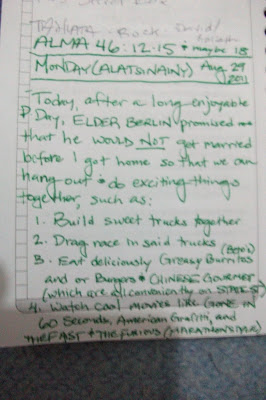 ALMA 46:12-15 + maybe 18
MONDAY (ALATSINAINY) Aug 29
2011
Today, after a long enjoyable
P Day, ELDER BERLIN promised me
that he would NOT get married
before I got home so that we can
hang out & do exciting things
together, such as:
1. Build sweet trucks together
2. Drag race in said trucks
3. Eat deliciously Greasy Burritos
and or Burgers & CHINESE GOVERNER
(which are all conveniently on STATE ST)
4. Watch Cool movies like GONE IN
60 Seconds, American Graffiti, and
THE FAST & THE FURIOUS (MARATHON STYLE)